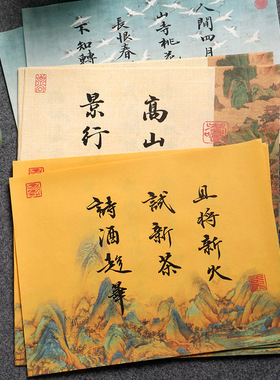 人間四月
山寺桃花
長恨春
不知轉
高山
景行
且將新火
試新茶
詩酒趁華